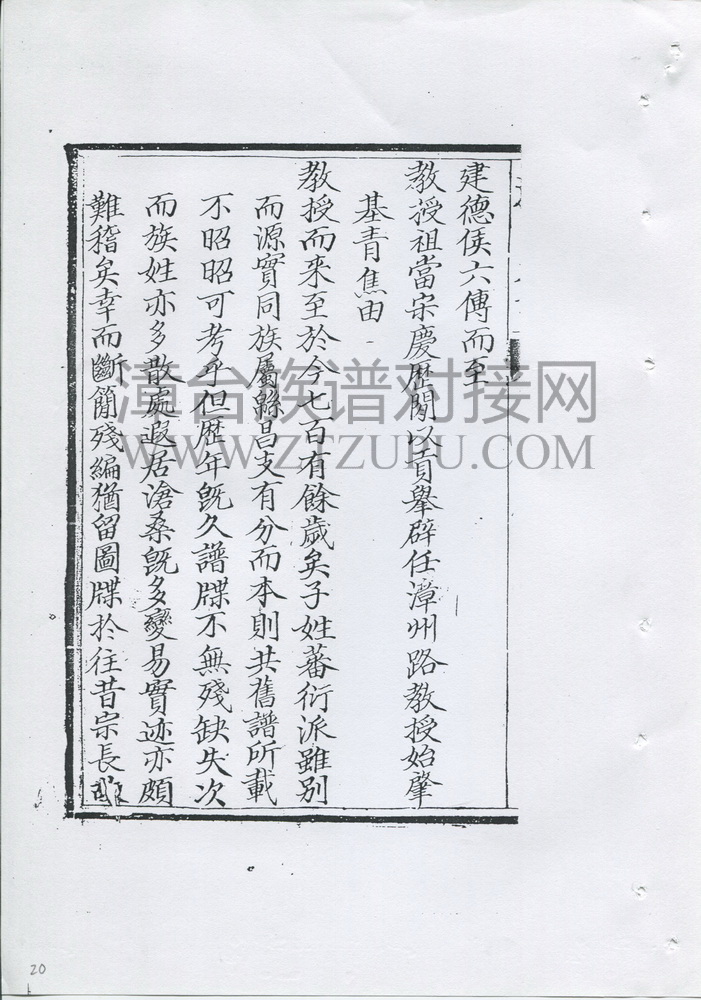 建德侯六傳而至
教授祖當宋慶歷間以貢舉辟任漳州路教授始肇
基青焦由
教授而來至於今七百有餘歲矣子姓蕃衍派雖別
而源實同族屬緜昌支有分而本則共舊譜所載
不昭昭可考乎但歷年旣久譜牒不無殘缺失次
而族姓亦多散處遐居滄桑旣多變易實迹亦頗
難稽矣幸而斷簡殘編猶留圖牒於往昔宗長
漳台族谱对接网
WWW.ZTZUPU.COM
20